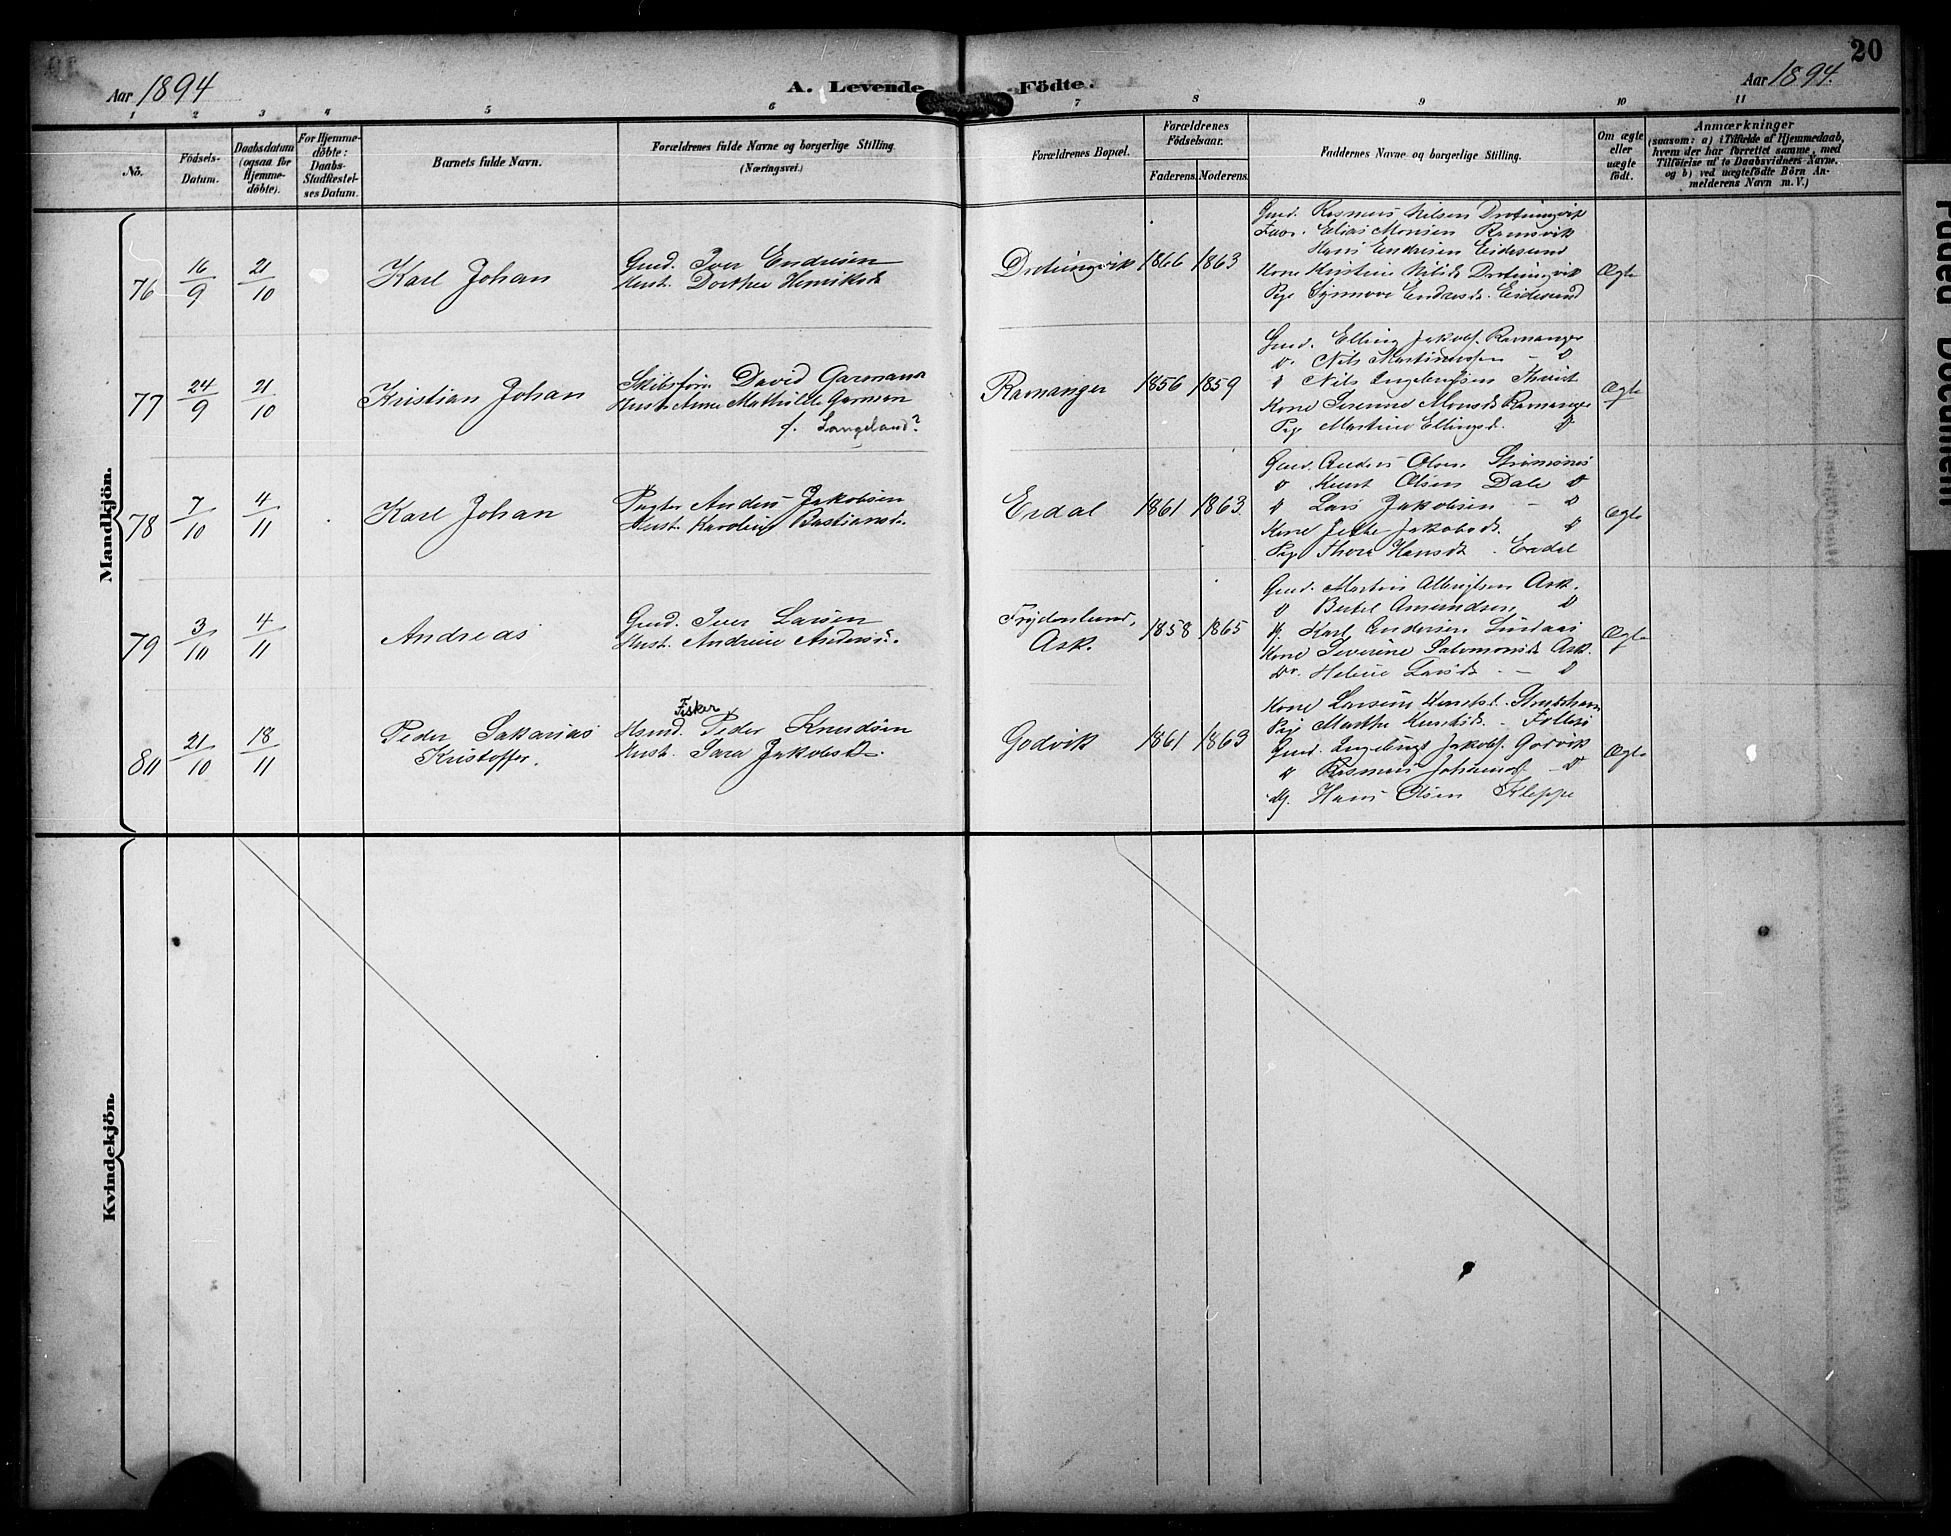 20
Aar 1894
A. Levende Födte.
Aar 1894.
1 2 3 4 5 6 7 8 9 10 11
No.
Födsels-Datum.
Daabsdatum (ogsaa for Hjemme-döbte).
For Hjemme-döbte: Daabs-Stadfæstel-ses Datum.
Barnets fulde Navn.
Forældrenes fulde Navne og borgerlige Stilling. (Næringsvei.)
Forældrenes Bopæl.
Forældrenes Födselsaar.
Faderens. Moderens.
Faddernes Navne og borgerlige Stilling.
Om ægte eller uægte födt.
Anmærkninger
(saasom: a) i Tilfælde af Hjemmedaab, hvem der har forrettet samme, med Tilföielse af to Daabsvidners Navne, og b) ved uægtefödte Börn An-melderens Navn m.V.)
Mandkjön.
76 16/9 21/10 Karl Johan
Gmd. Iver Endresen
Hust. Dorthea Henriksd.
Drotningvik 1866 1863
Gmd. Rasmus Nilsen Drotningvik
Elias Monsen Ramsvik
Hans Endresen Eidesund
Kone Kristine Nilsd. Drotningvik
Pige Synnove Endresd. Eidesund
Ægte
77 24/9 21/10 Kristian Johan
David Garmann
Hust. Anne Mathilde Garman
f. Langeland?
Ramanger 1856 1859
Gmd. Elling Jakobs. Ramanger
Do. Nils Martinussen — D
D Nils Ingebrigtsen
Kone Serine Monsd. Ramanger
Pige Martine Ellingsd. D
Ægte
78 7/10 4/11 Karl Johan
Anders Jakobsen
Hust. Karoline Bastiansd.
Erdal 1861 1863
Gmd. Anders Olsen Strømsnes
D Knut Olsen Dale D
D Lars Jakobsen — D
Kone Jakobsd. D
Pige Thora Hansd. Erdal
Ægte
79 3/10 4/11 Andreas
Gmd. Iver Larsen
Hust. Andrine Andersd.
Frydenlund,
Ask. 1858 1865
Gmd. Martin Albrigtsen Ask.
D Bertel Amundsen D
Karl Andersen Lindaas
Kone Severine Salomonsd. Ask.
Do. Heline Larsd. — D
Ægte
80 21/10 18/11 Peder Sakarias
Kristoffer.
Fisker
Hsmd. Peder Knudsen
Hust. Sara Jakobsd.
Godvik 1861 1863
Kone Larsine Knutsd.
Pige Marthe Knutsd. Follesö
Gmd. Ingebrigt Jakobs. Godvik
D Rasmus Johannes. D
Hans Olsen Kleppe
Ægte
Kvindekjön.
Faded Document